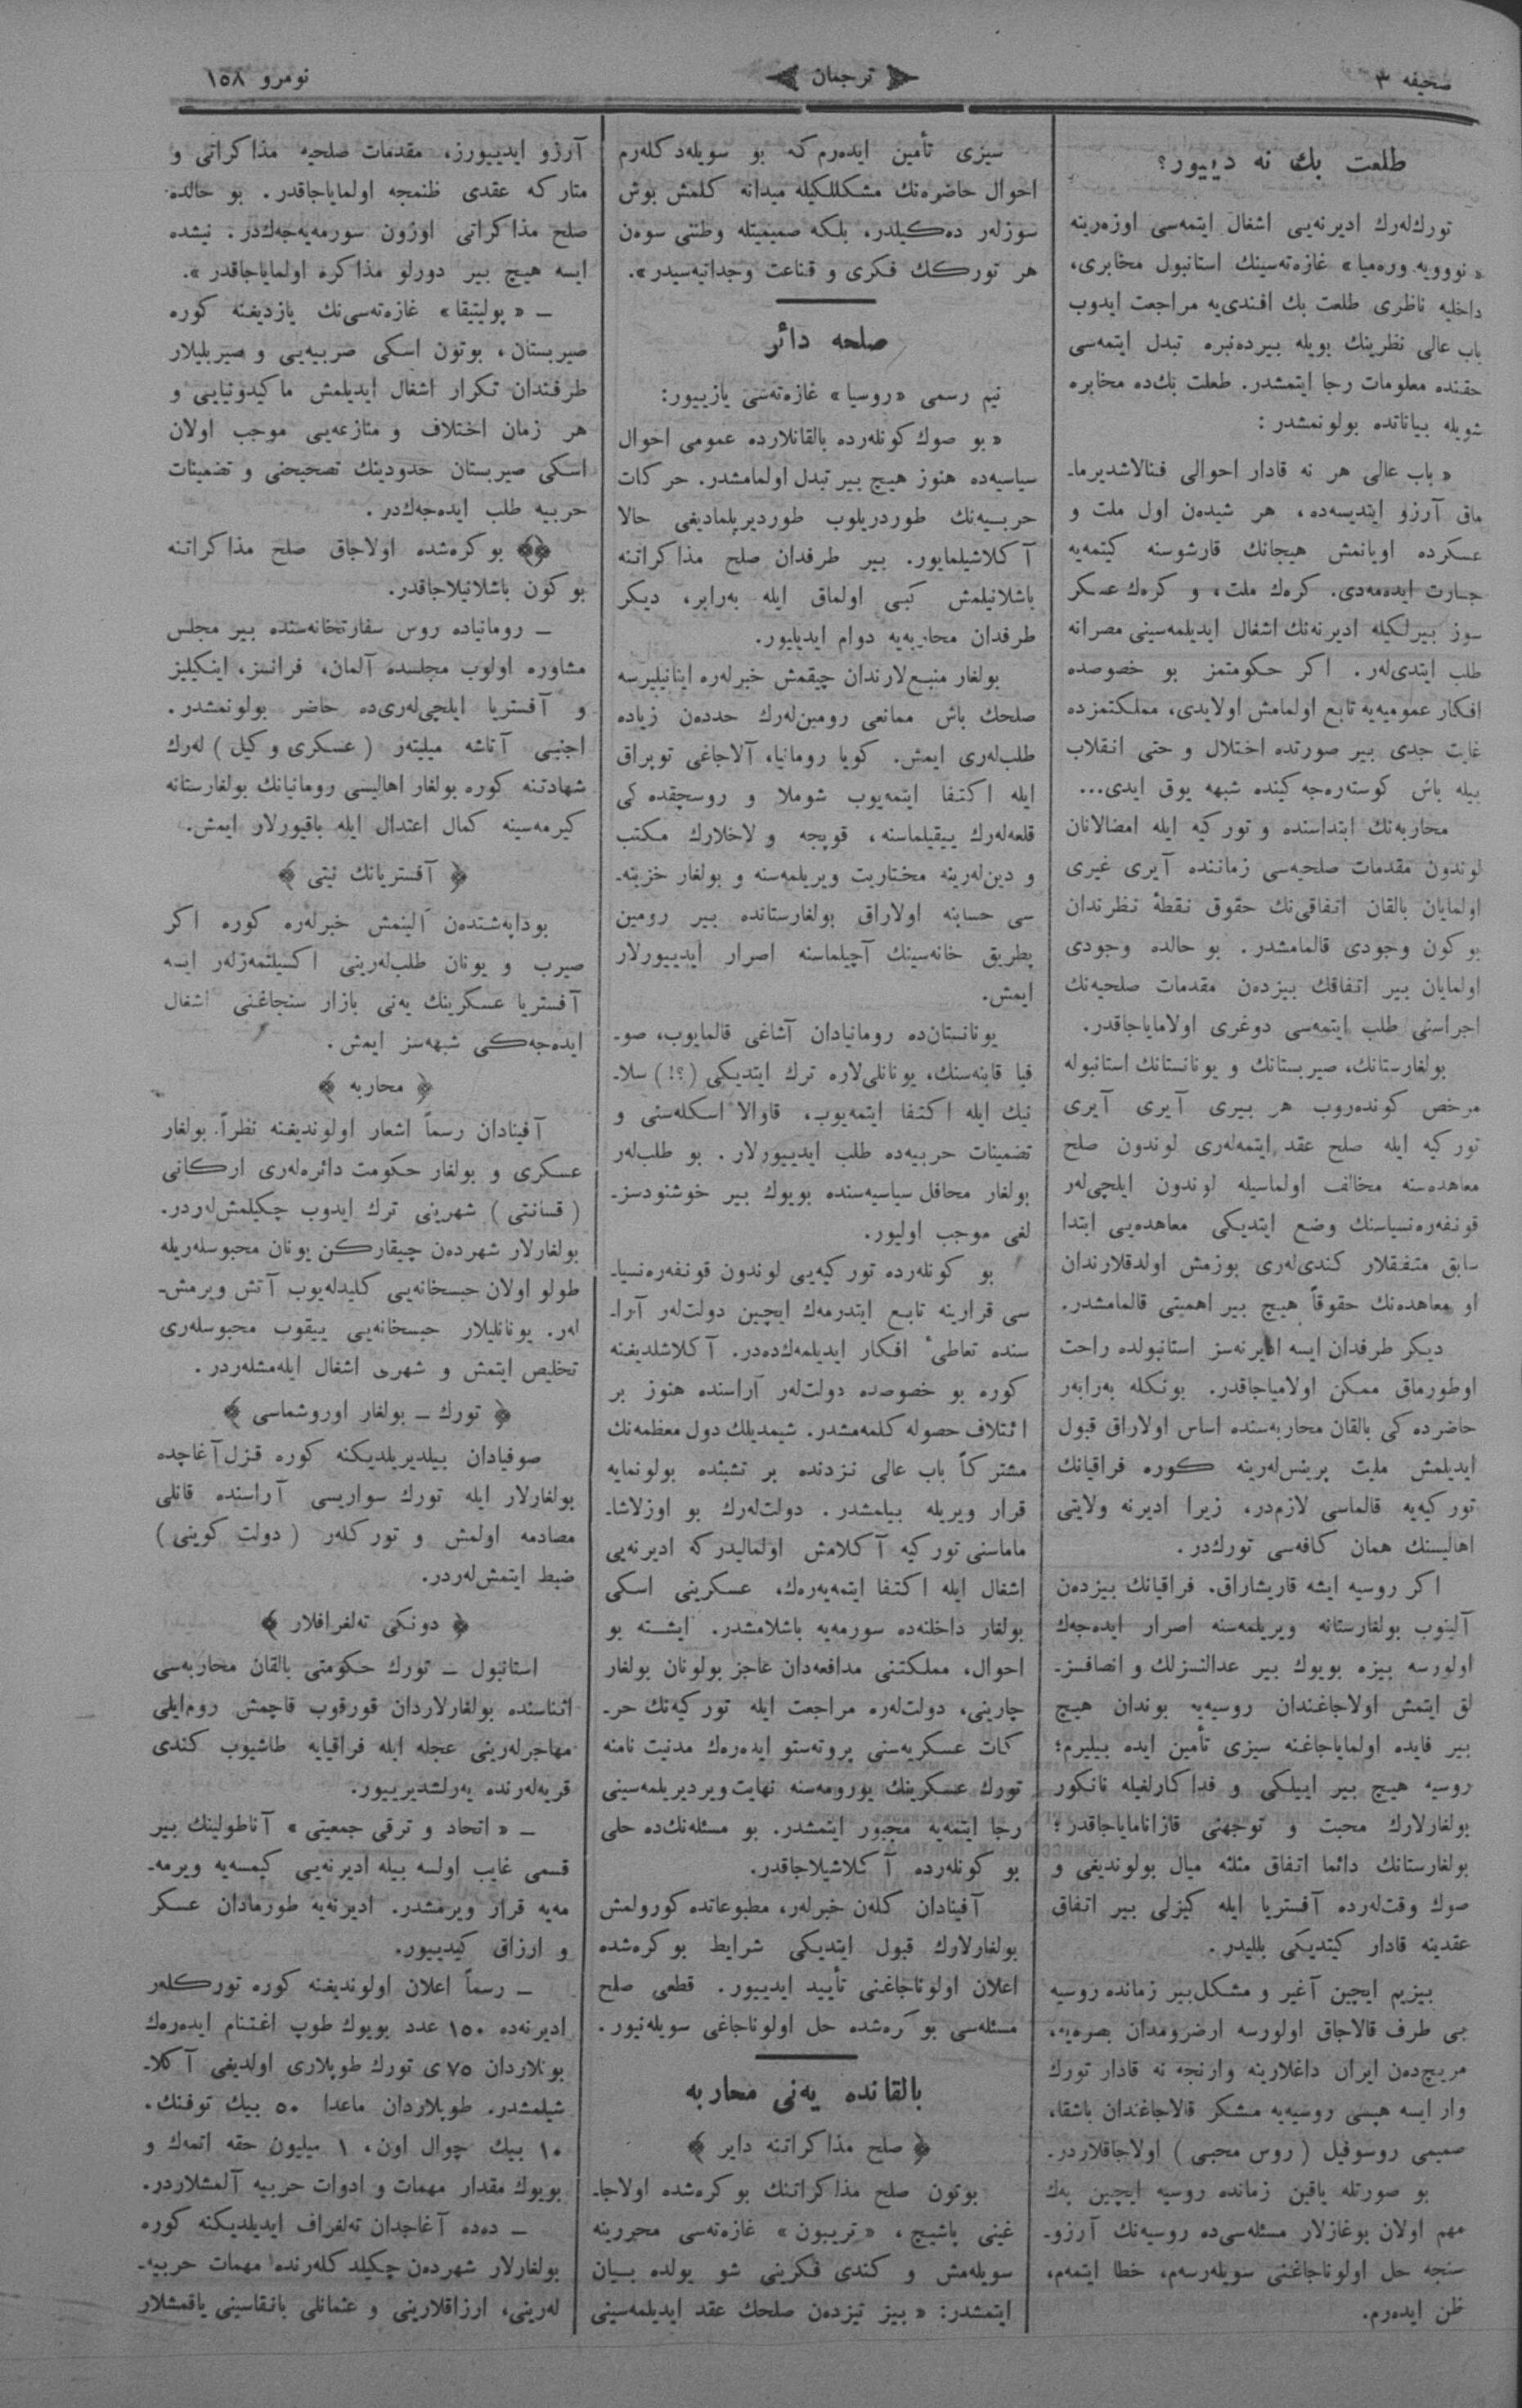 صحیفه ٣
ترجمان
نومرو ١٥٨
طلعت بك نه دییور؟
تورك‌لەرك ادیرنەیی اشغال ایتمەسی اوزەرینه
« نوویه ورەمیا » غازەتەسینك استانبول مخابری،
داخلیه ناظری طلعت بك افندی‌یه مراجعت ایدوب
باب عالی نظرینك بویله بیردەنبره تبدل ایتمەسی
حقنده معلومات رجا ایتمشدر. طعلت بك‌ده مخابره
شویله بیاناتده بولونمشدر :
« باب عالی هر نه قادار احوالی فنالاشدیرما-
ماق آرزو ایتدیسەده، هر شیدەن اول ملت و
عسكرده اویانمش هیجانك قارشوسنه كیتمەیه
جسارت ایدەمەدی. كرەك ملت، و كرەك عسكر
سوز بیرلكیله ادیرنەنك اشغال ایدیلمەسینی مصرانه
طلب ایتدی‌لەر. اكر حكومتمز بو خصوصده
افكار عمومیەیه تابع اولمامش اولایدی، مملكتمزده
غایت جدی بیر صورتده اختلال و حتی انقلاب
بیله باش كوستەرەجەكینده شبهه یوق ایدی...
محاربەنك ابتداسنده و توركیه ایله امضالانان
لوندون مقدمات صلحیەسی زماننده آیری غیری
اولمایان بالقان اتفاقی‌نك حقوق نقطۀ نظرندان
بوكون وجودی قالمامشدر. بو حالده وجودی
اولمایان بیر اتفاقك بیزدەن مقدمات صلحیەنك
اجراسنی طلب ایتمەسی دوغری اولامایاجاقدر.
بولغارستانك، صیربستانك و یونانستانك استانبوله
مرخص كوندەروب هر بیری آیری آیری
توركیه ایله صلح عقد ایتمەلەری لوندون صلح
معاهدەسنه مخالف اولماسیله لوندون ایلچی‌لەر
قونفەرەنسیاسنك وضع ایتدیكی معاهدەیی ابتدا
سابق متفقلار كندی‌لەری بوزمش اولدقلارندان
او معاهدەنك حقوقاً هیچ بیر اهمیتی قالمامشدر.
دیكر طرفدان ایسه ادیرنەسز استانبولده راحت
اوطورماق ممكن اولامیاجاقدر. بونكله بەرابەر
حاضرده‌كی بالقان محاربەسنده اساس اولاراق قبول
ایدیلمش ملیت پرینس‌لەرینه كوره فراقیانك
توركیەیه قالماسی لازم‌در، زیرا ادیرنه ولایتی
اهالیسنك همان كافەسی تورك‌در.
اكر روسیه ایشه قاریشاراق. فراقیانك بیزدەن
آلینوب بولغارستانه ویریلمەسنه اصرار ایدەجەك
اولورسه بیزه بویوك بیر عدالتسزلك و انصافسز-
لق ایتمش اولاجاغندان روسیەیه بوندان هیچ
بیر فایده اولمایاجاغنه سیزی تأمین ایده بیلیرم؛
روسیه هیچ بیر اییلكی و فداكارلغیله نانكور
بولغارلارك محبت و توجهنی قازانامایاجاقدر؛
بولغارستانك دائما اتفاق مثلثه میال بولوندیغی و
صوك وقت‌لەرده آفستریا ایله كیزلی بیر اتفاق
عقدینه قادار كیتدیكی بللیدر.
بیزیم ایچین آغیر و مشكل بیر زمانده روسیه
بی طرف قالاجاق اولورسه ارضرومدان بصرەیه،
مریج‌دەن ایران داغلارینه وارنجه نه قادار تورك
وار ایسه هپسی روسیەیه متشكر قالاجاغندان باشقا،
صمیمی روسوفیل ( روس محبی ) اولاجاقلاردر.
بو صورتله یاقین زمانده روسیه ایچین پەك
مهم اولان بوغازلار مسئلەسی‌ده روسیەنك آرزو-
سنجه حل اولوناجاغنی سویلەرسەم، خطا ایتمەم،
ظن ایدەرم.
سیزی تأمین ایدەرم كه بو سویلەدكلەرم
احوال حاضرەنك مشكللكیله میدانه كلمش بوش
سوزلەر دەكیلدر، بلكه صمیمیتله وطننی سوەن
هر توركك فكری و قناعت وجدانیەسیدر».
صلحه دائر
نیم رسمی «روسیا» غازەتەسی یازییور:
« بو صوك كونلەرده بالقانلارده عمومی احوال
سیاسیەده هنوز هیچ بیر تبدل اولمامشدر. حركات
حربیەنك طوردریلوب طوردیریلمادیغی حالا
آكلاشیلمایور. بیر طرفدان صلح مذاكراتنه
باشلانیلمش كبی اولماق ایله بەرابر، دیكر
طرفدان محاربەیه دوام ایدیلیور.
بولغار منبع‌لارندان چیقمش خبرلەره اینانیلیرسه
صلحك باش ممانعی رومین‌لەرك حددەن زیاده
طلب‌لەری ایمش. كویا رومانیا، آلاجاغی توپراق
ایله اكتفا ایتمەیوب شوملا و روسچقدەكی
قلعەلەرك ییقیلماسنه، قوچه ولاخلارك مكتب
و دین‌لەرینه مختاریت ویریلمەسنه و بولغار خزینە-
سی حسابنه اولاراق بولغارستانده بیر رومین
پطریق خانەسینك آچیلماسنه اصرار ایدییورلار
ایمش.
یونانستان‌ده رومانیادان آشاغی قالمایوب، صو-
فیا قابنەسنك، یونانلی‌لاره ترك ایتدیكی (؟!) سلا-
نیك ایله اكتفا ایتمەیوب، قاوالا اسكلەسنی و
تضمینات حربیەده طلب ایدییورلار. بو طلب‌لەر
بولغار محافل سیاسیەسنده بویوك بیر خوشنودسز-
لغی موجب اولیور.
بو كونلەرده توركیەیی لوندون قونفەرەنسیا-
سی قرارینه تابع ایتدرمەك ایچین دولت‌لەر آرا-
سنده تعاطیء افكار ایدیلمەك‌دەدر. آكلاشلدیغنه
كوره بو خصوصده دولت‌لەر آراسنده هنوز بر
ائتلاف حصوله كلمەمشدر. شیمدیلك دول معظمەنك
مشتركاً باب عالی نزدنده بر تشبثده بولونمایه
قرار ویریله بیلمشدر. دولت‌لەرك بو اوزلاشا-
ماماسنی توركیه آكلامش اولمالیدركه ادیرنەیی
اشغال ایله اكتفا ایتمەیەرەك، عسكرینی اسكی
بولغار داخلنەده سورمەیه باشلامشدر. ایشته بو
احوال، مملكتنی مدافعەدان عاجز بولونان بولغار
چارینی، دولت‌لەره مراجعت ایله توركیەنك حر-
كات عسكریەسنی پروتەستو ایدەرەك مدنیت نامنه
تورك عسكرینك یورومەسنه نهایت ویردیریلمەسینی
رجا ایتمەیه مجبور ایتمشدر. بو مسئلەنك‌ده حلی
بو كونلەرده آكلاشیلاجاقدر.
آفینادان كلەن خبرلەر، مطبوعاتده كورولمش
بولغارلارك قبول ایتدیكی شرایط بوكرەشده
اعلان اولوناجاغنی تأیید ایدییور. قطعی صلح
مسئلەسی بوكرەشده حل اولوناجاغی سویلەنیور.
بالقانده یەنی محاربه
﴿ صلح مذاكراتنه دایر ﴾
بوتون صلح مذاكراتنك بوكرەشده اولاجا-
غینی پاشیچ، « تریبون » غازەتەسی محررینه
سویلەمش و كندی فكرینی شو یولده بیان
ایتمشدر: « بیز تیزدەن صلحك عقد ایدیلمەسینی
آرزو ایدییورز، مقدمات صلحیه مذاكراتی و
متاركه عقدی ظنمجه اولمایاجاقدر. بو حالده
صلح مذاكراتی اوزون سورمەیەجەك‌در. نیشده
ایسه هیچ بیر دورلو مذاكره اولمایاجاقدر ».
— « پولیتیقا » غازەتەسی‌نك یازدیغنه كوره
صیربستان، بوتون اسكی صربیەیی و صیربلیلار
طرفندان تكرار اشغال ایدیلمش ماكیدونیایی و
هر زمان اختلاف و منازعەیی موجب اولان
اسكی صیربستان حدودینك تصحیحنی و تضمینات
حربیه طلب ایدەجەك‌در.
بوكرەشده اولاجاق صلح مذاكراتنه
بوكون باشلانیلاجاقدر.
— رومانیاده روس سفارتخانەسنده بیر مجلس
مشاوره اولوب مجلسده آلمان، فرانسز، اینكلیز
و آفستریا ایلچی‌لەری‌ده حاضر بولونمشدر.
اجنبی آتاشه میلیتەر ( عسكری وكیل ) لەرك
شهادتنه كوره بولغار اهالیسی رومانیانك بولغارستانه
كیرمەسنه كمال اعتدال ایله باقیورلار ایمش.
﴿ آفستریانك نیتی ﴾
بوداپەشتدەن آلینمش خبرلەره كوره اكر
صیرب و یونان طلب‌لەرینی اكسیلتمەزلەر ایسه
آفستریا عسكرینك یەنی بازار سنجاغنی اشغال
ایدەجەكی شبهەسز ایمش.
﴿ محاربه ﴾
آفینادان رسماً اشعار اولوندیغنه نظراً. بولغار
عسكری و بولغار حكومت دائرەلەری اركانی
( قسانتی ) شهرینی ترك ایدوب چكیلمش‌لەردر.
بولغارلار شهردەن چیقاركن یونان محبوسلەریله
طولو اولان حبسخانەیی كلیدلەیوب آتش ویرمش-
لەر. یونانلیلار حبسخانەیی ییقوب محبوسلەری
تخلیص ایتمش و شهری اشغال ایلەمشلەردر.
﴿ تورك — بولغار اوروشماسی ﴾
صوفیادان بیلدیریلدیكنه كوره قزل آغاجده
بولغارلار ایله تورك سواریسی آراسنده قانلی
مصادمه اولمش و توركلەر ( دولت كوینی )
ضبط ایتمش‌لەردر.
﴿ دونكی تەلغرافلار ﴾
استانبول — تورك حكومتی بالقان محاربەسی
اثناسنده بولغارلاردان قورقوب قاچمش روم‌ایلی
مهاجرلەرینی عجله ایله فراقیایه طاشیوب كندی
قریەلەرنده یەرلشدیرییور.
— « اتحاد و ترقی جمعیتی » آناطولینك بیر
قسمی غایب اولسه بیله ادیرنەیی كیمسەیه ویرمە-
مەیه قرار ویرمشدر. ادیرنەیه طورمادان عسكر
و ارزاق كیدییور.
— رسماً اعلان اولوندیغنه كوره توركلەر
ادیرنەده ١٥٠ عدد بویوك طوپ اغتنام ایدەرەك
بونلاردان ٧٥ی تورك طوپلاری اولدیغی آكلا-
شیلمشدر. طوپلاردان ماعدا ٥٠ بیك توفنك،
١٠ بیك چوال اون، ١ میلیون حقه اتمەك و
بویوك مقدار مهمات و ادوات حربیه آلمشلاردر.
— دەده آغاجدان تەلغراف ایدیلدیكنه كوره
بولغارلار شهردەن چكیلدكلەرنده مهمات حربیه-
لەرینی، ارزاقلارینی و عثمانلی بانقاسینی یاقمشلار